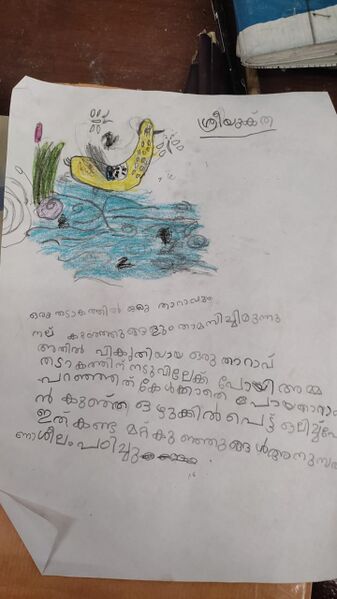 ശ്രീയുക്ത
ഒരു തടാകത്തിൽ ഒരു താറാവും
നല് കുഞ്ഞുങ്ങളും താമസിച്ചിരുന്നു
അതിൽ വികൃതിയായ ഒരു താറാവ്
തടാകത്തിന് നടുവിലേക്ക് പോയി അമ്മ
പറഞ്ഞത് കേൾക്കാതെ പോയതാണ്
ൻ കുഞ്ഞ് ഒഴുക്കിൽ പെട്ട് ഒലിച്ച്പോ
ഇത് കണ്ട മറ്റ് കുഞ്ഞുങ്ങൾ അനുസര
ണശീലം പഠിച്ചു